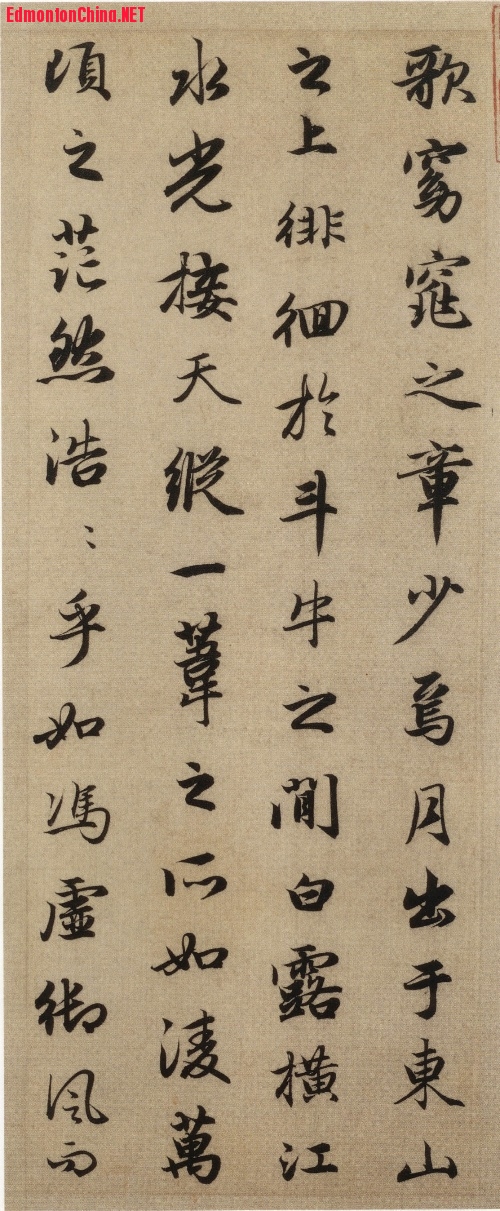 EdmontonChina.NET
歌窈窕之章少焉月出于東山
之上徘徊於斗牛之間白露橫江
水光接天縱一葦之所如淩萬
頃之茫然浩〻乎如馮虛御風而